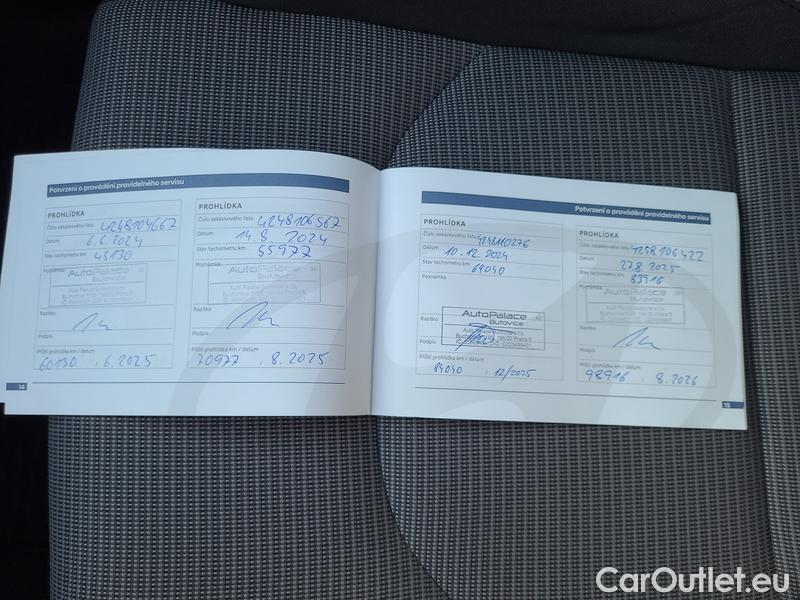 Potvrzení o provádění pravidelného servisu
PROHLÍDKA
Číslo zakázkového listu 4248104667
Datum 6.6.2024
Stav tachometru km 45130
Poznámka
AutoPalace
Butovice
Razítko
Podpis
Příští prohlídka km / datum
60130 , 6.2025
14
PROHLÍDKA
Číslo zakázkového listu 4248106567
Datum 14.8.2024
Stav tachometru km 55977
Poznámka
AutoPalace
Butovice
Razítko
Podpis
Příští prohlídka km / datum
70977 , 8.2025
Potvrzení o provádění pravidelného servisu
PROHLÍDKA
Číslo zakázkového listu 4248110276
Datum 10.12.2024
Stav tachometru km 69040
Poznámka
AutoPalace
Butovice
Razítko
Podpis
Příští prohlídka km / datum
84040 , 12/2025
PROHLÍDKA
Číslo zakázkového listu 4258106422
Datum 27.8.2025
Stav tachometru km 83916
Poznámka
AutoPalace
Butovice
Razítko
Podpis
Příští prohlídka km / datum
98916 , 8.2026
15
CarOutlet.eu